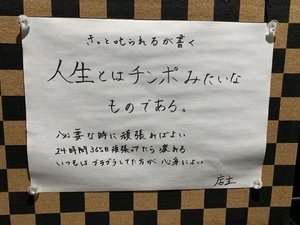 きっと叱られるが書く
人生とはチンポみたいな
ものである。
必要な時に頑張ればよい
24時間365日頑張ってたら壊れる
いつもはブラブラしてた方が心身によい
店主